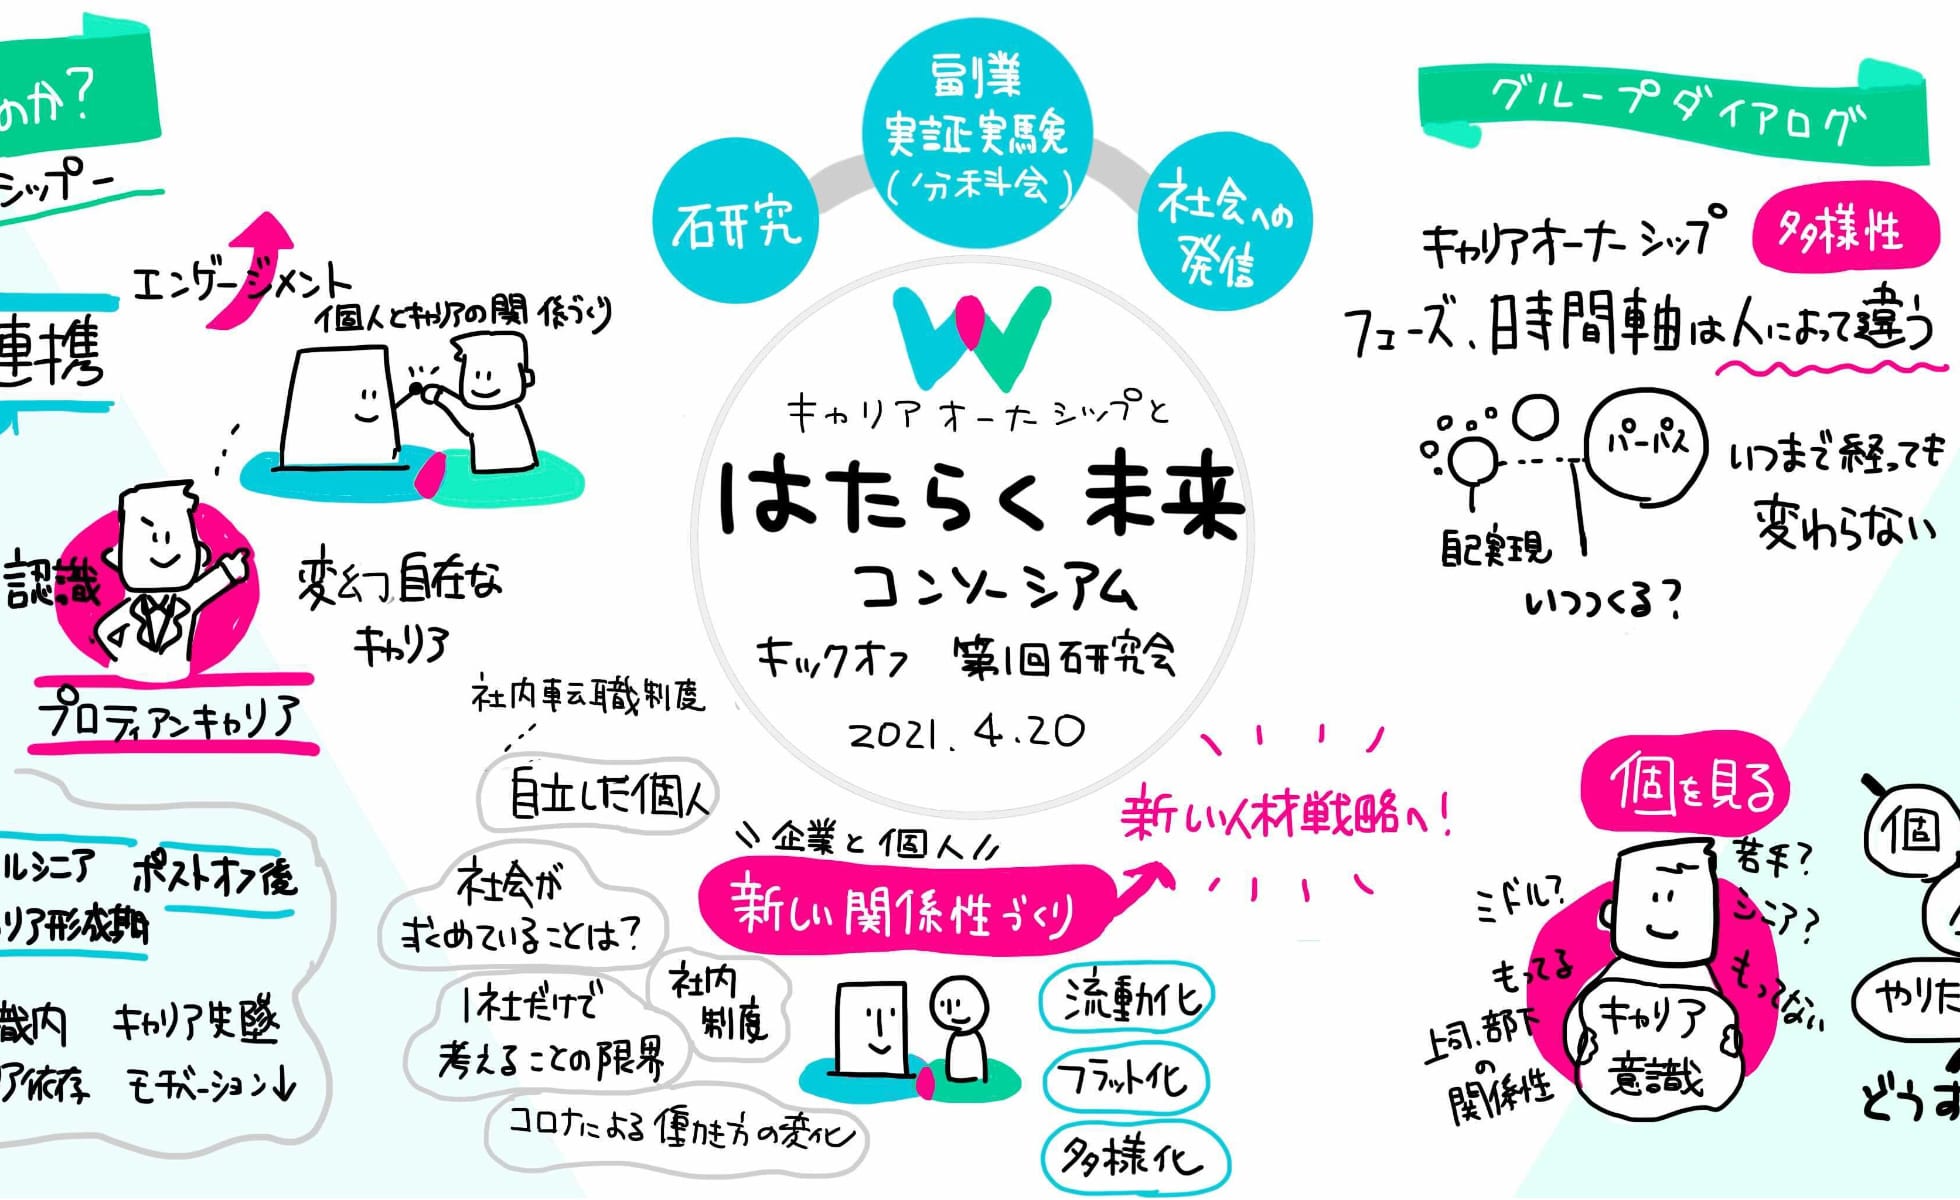 のか？
シップー
エンゲージメント
個人とキャリアの関係づくり
連携
認識
変幻自在な
キャリア
プロティアンキャリア
ルシニア ポストオフ後
リア形成期
職内 キャリア失墜
ア依存 モチベーション↓
研究
副業
実証実験
(分科会)
社会への
発信
キャリアオーナーシップと
はたらく未来
コンソーシアム
キックオフ 第1回研究会
2021.4.20
社内転職制度
自立した個人
社会が
求めていることは？
1社だけで
考えることの限界
社内
制度
コロナによる働き方の変化
\\企業と個人//
新しい関係性づくり
新しい人材戦略へ！
流動化
フラット化
多様化
グループダイアログ
キャリアオーナーシップ
多様性
フェーズ、時間軸は人によって違う
パーパス
いつまで経っても
変わらない
自己実現
いつつくる？
個を見る
若手？
ミドル？
シニア？
もってる
もってない
キャリア
意識
上司、部下
の
関係性
個
やりた
どうす